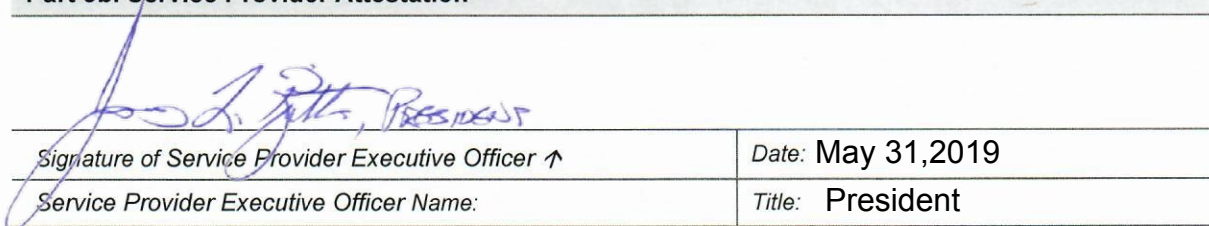 Part 3b. Service Provider Attestation
L. PRESIDENT
Signature of Service Provider Executive Officer ↑ Date: May 31,2019
Service Provider Executive Officer Name: Title: President